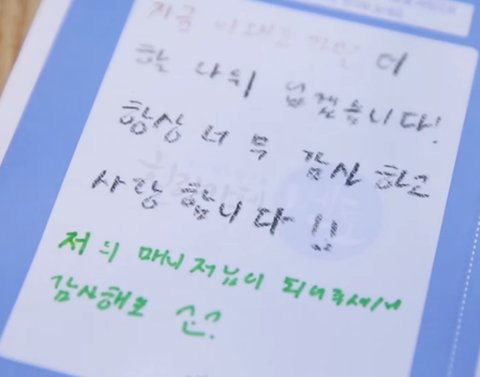 지금 이대로 가면 더
할 나위 없겠습니다!
항상 너무 감사하고
사랑합니다!!
저의 매니저님이 되어주셔서
감사해요